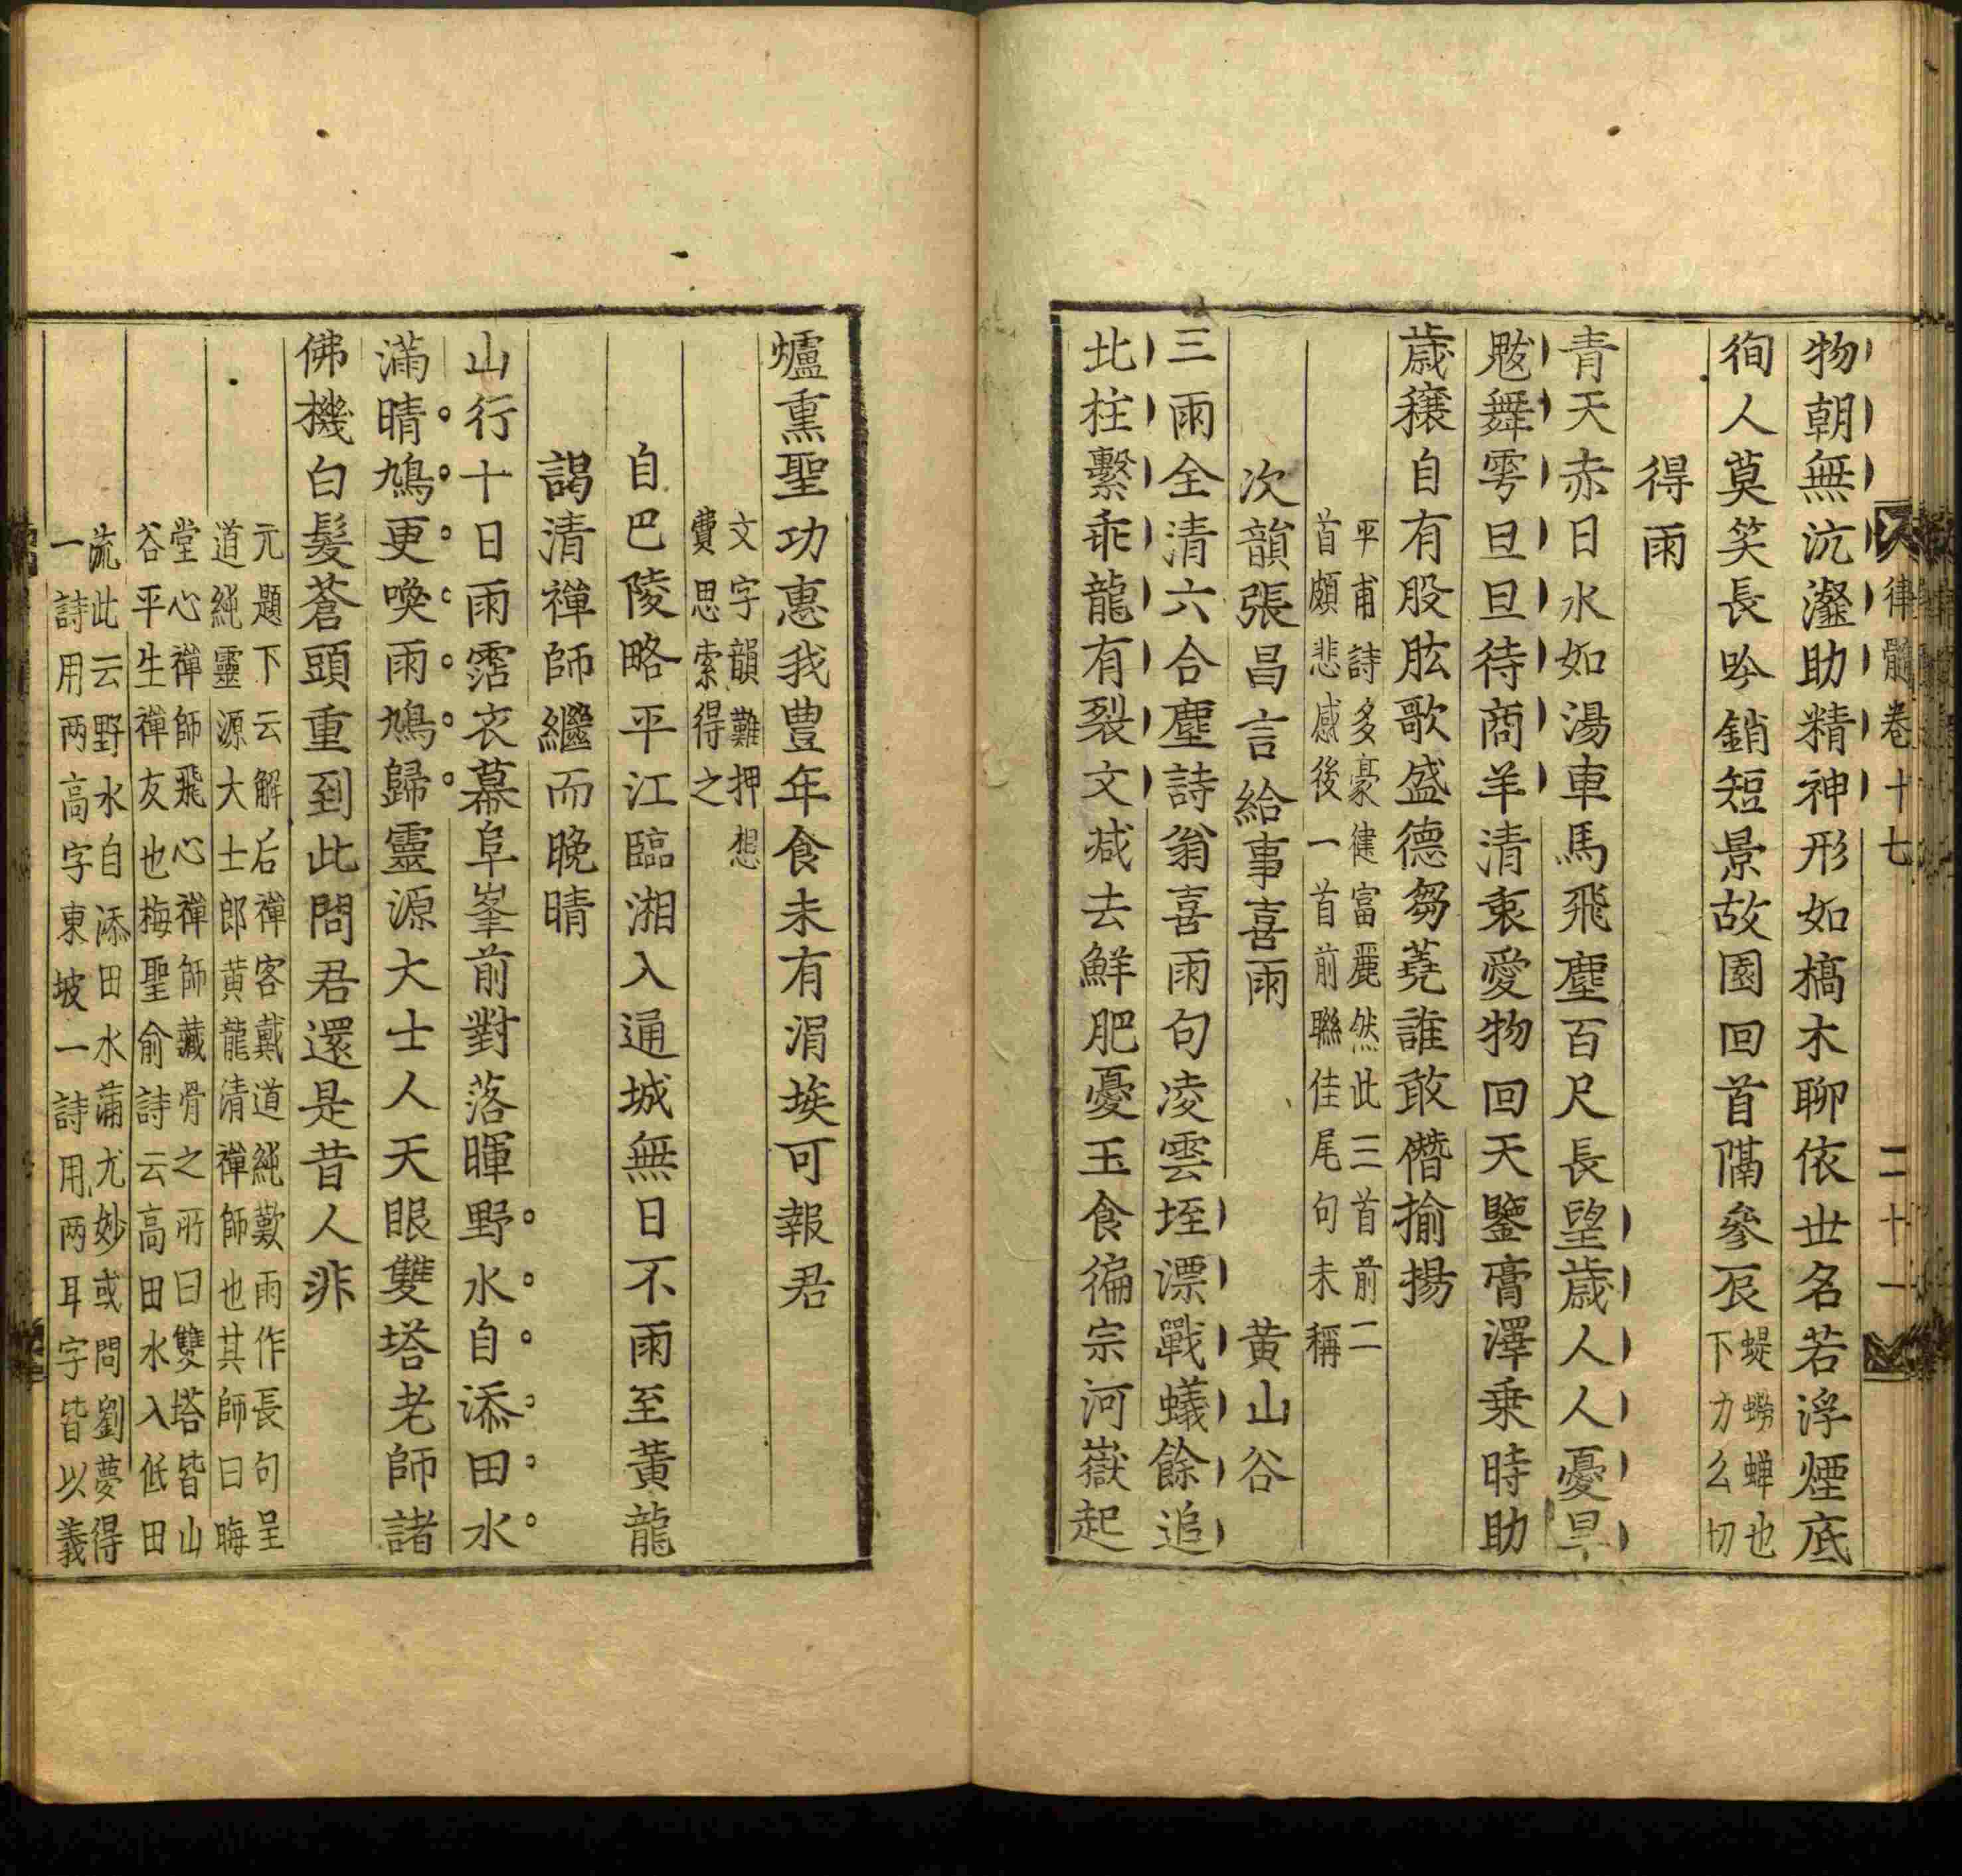 律髓卷十七 二十一
物朝無沆瀣助精神形如槁木聊依世名若浮煙底
徇人莫笑長吟銷短景故園回首隔參辰
蝭蟧蟬也
下力么切
得雨
青天赤日水如湯車馬飛塵百尺長望歲人人憂旱
魃舞雩旦旦待商羊清衷愛物回天鑒膏澤乗時助
歲穰自有股肱歌盛德芻蕘誰敢僭揄揚
平甫詩多豪健富麗然此三首前二
首頗悲感後一首前聯佳尾句未稱
次韻張昌言給事喜雨 黄山谷
三雨全清六合塵詩翁喜雨句凌雲垤漂戰蟻餘追
北柱繫乖龍有裂文減去鮮肥憂玉食徧宗河嶽起
爐熏聖功惠我豊年食未有涓埃可報君
文字韻難押想
費思索得之
自巴陵略平江臨湘入通城無日不雨至黃龍
謁清禪師繼而晚晴
山行十日雨霑衣幕阜峯前對落暉野水自添田水
滿晴鳩更喚雨鳩歸靈源大士人天眼雙塔老師諸
佛機白髮蒼頭重到此問君還是昔人非
元題下云解后禪客戴道純歎雨作長句呈
道純靈源大士郎黄龍清禪師也其師曰晦
堂心禪師飛心禪師藏骨之所曰雙塔皆山
谷平生禪友也梅聖俞詩云高田水入低田
流此云野水自添田水蒲尤妙或問劉夢得
一詩用两高字東坡一詩用两耳字皆以義